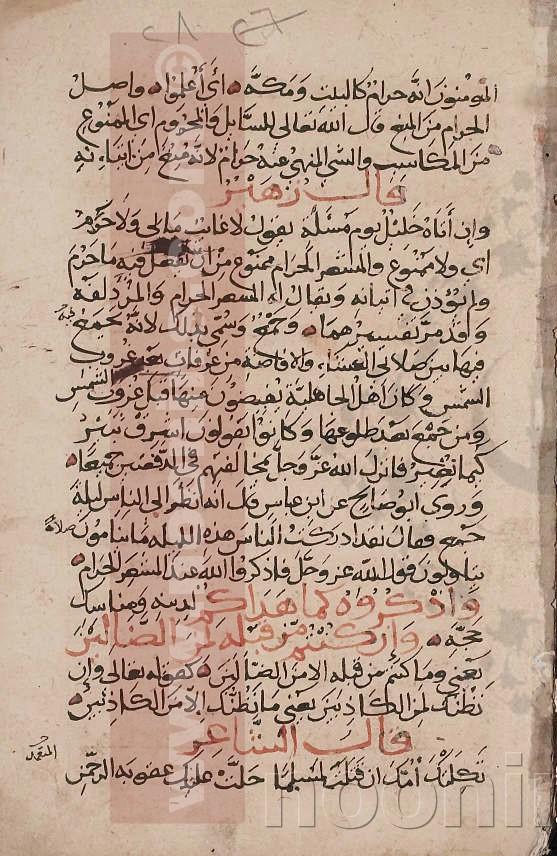 ٢٨
المومنون انه حرام كالبيت ومكة اي أعلموا واصل
الحرام من المنع قال الله تعالى للسايل والمحروم اي الممنوع
من المكاسب والشي المنهي عنه حرام لانه منع من اتيانه
قال زهير
وان أتاه خليل يوم مسئلة يقول لا غايب مالي ولا حرم
اي ولا ممنوع والمشعر الحرام ممنوع من ان يفعل فيه ما حرم
ولم يؤذن في اتيانه ويقال له المشعر الحرام والمزدلفة
وقد مر تفسيرهما وجمع وسمي بذلك لانه يجمع
فيها بين صلاتي العشاء والافاضه من عرفات بعد غروب
الشمس وكان اهل الجاهلية يفيضون منها قبل غروب الشمس
ومن جمع بعد طلوعها وكانوا يقولون اشرق ثبير
كيما نغير فانزل الله عز وجل مخالفتهم في الدفعتين جميعا
وروى ابو صالح عن ابن عباس قال انه نظر الى الناس ليلة
جمع وقال لقد ادركت الناس هذه الليله ما ينامون
صلاة
يتاولون قول الله عز وجل فاذكروا الله عند المشعر الحرام
واذكروه كما هداكم لدينه ومناسك
حجه وان كنتم من قبله لمن الضالين
يعني وما كنتم من قبله الا من الضالين كقوله تعالى وإن
نظنك لمن الكاذبين يعني ما نظنك إلا من الكاذبين
قال الشاعر
ثكلتك أمك ان قتلت لمسلما حلت عليك عقوبة الرحمن
www.noorlib
noorlib